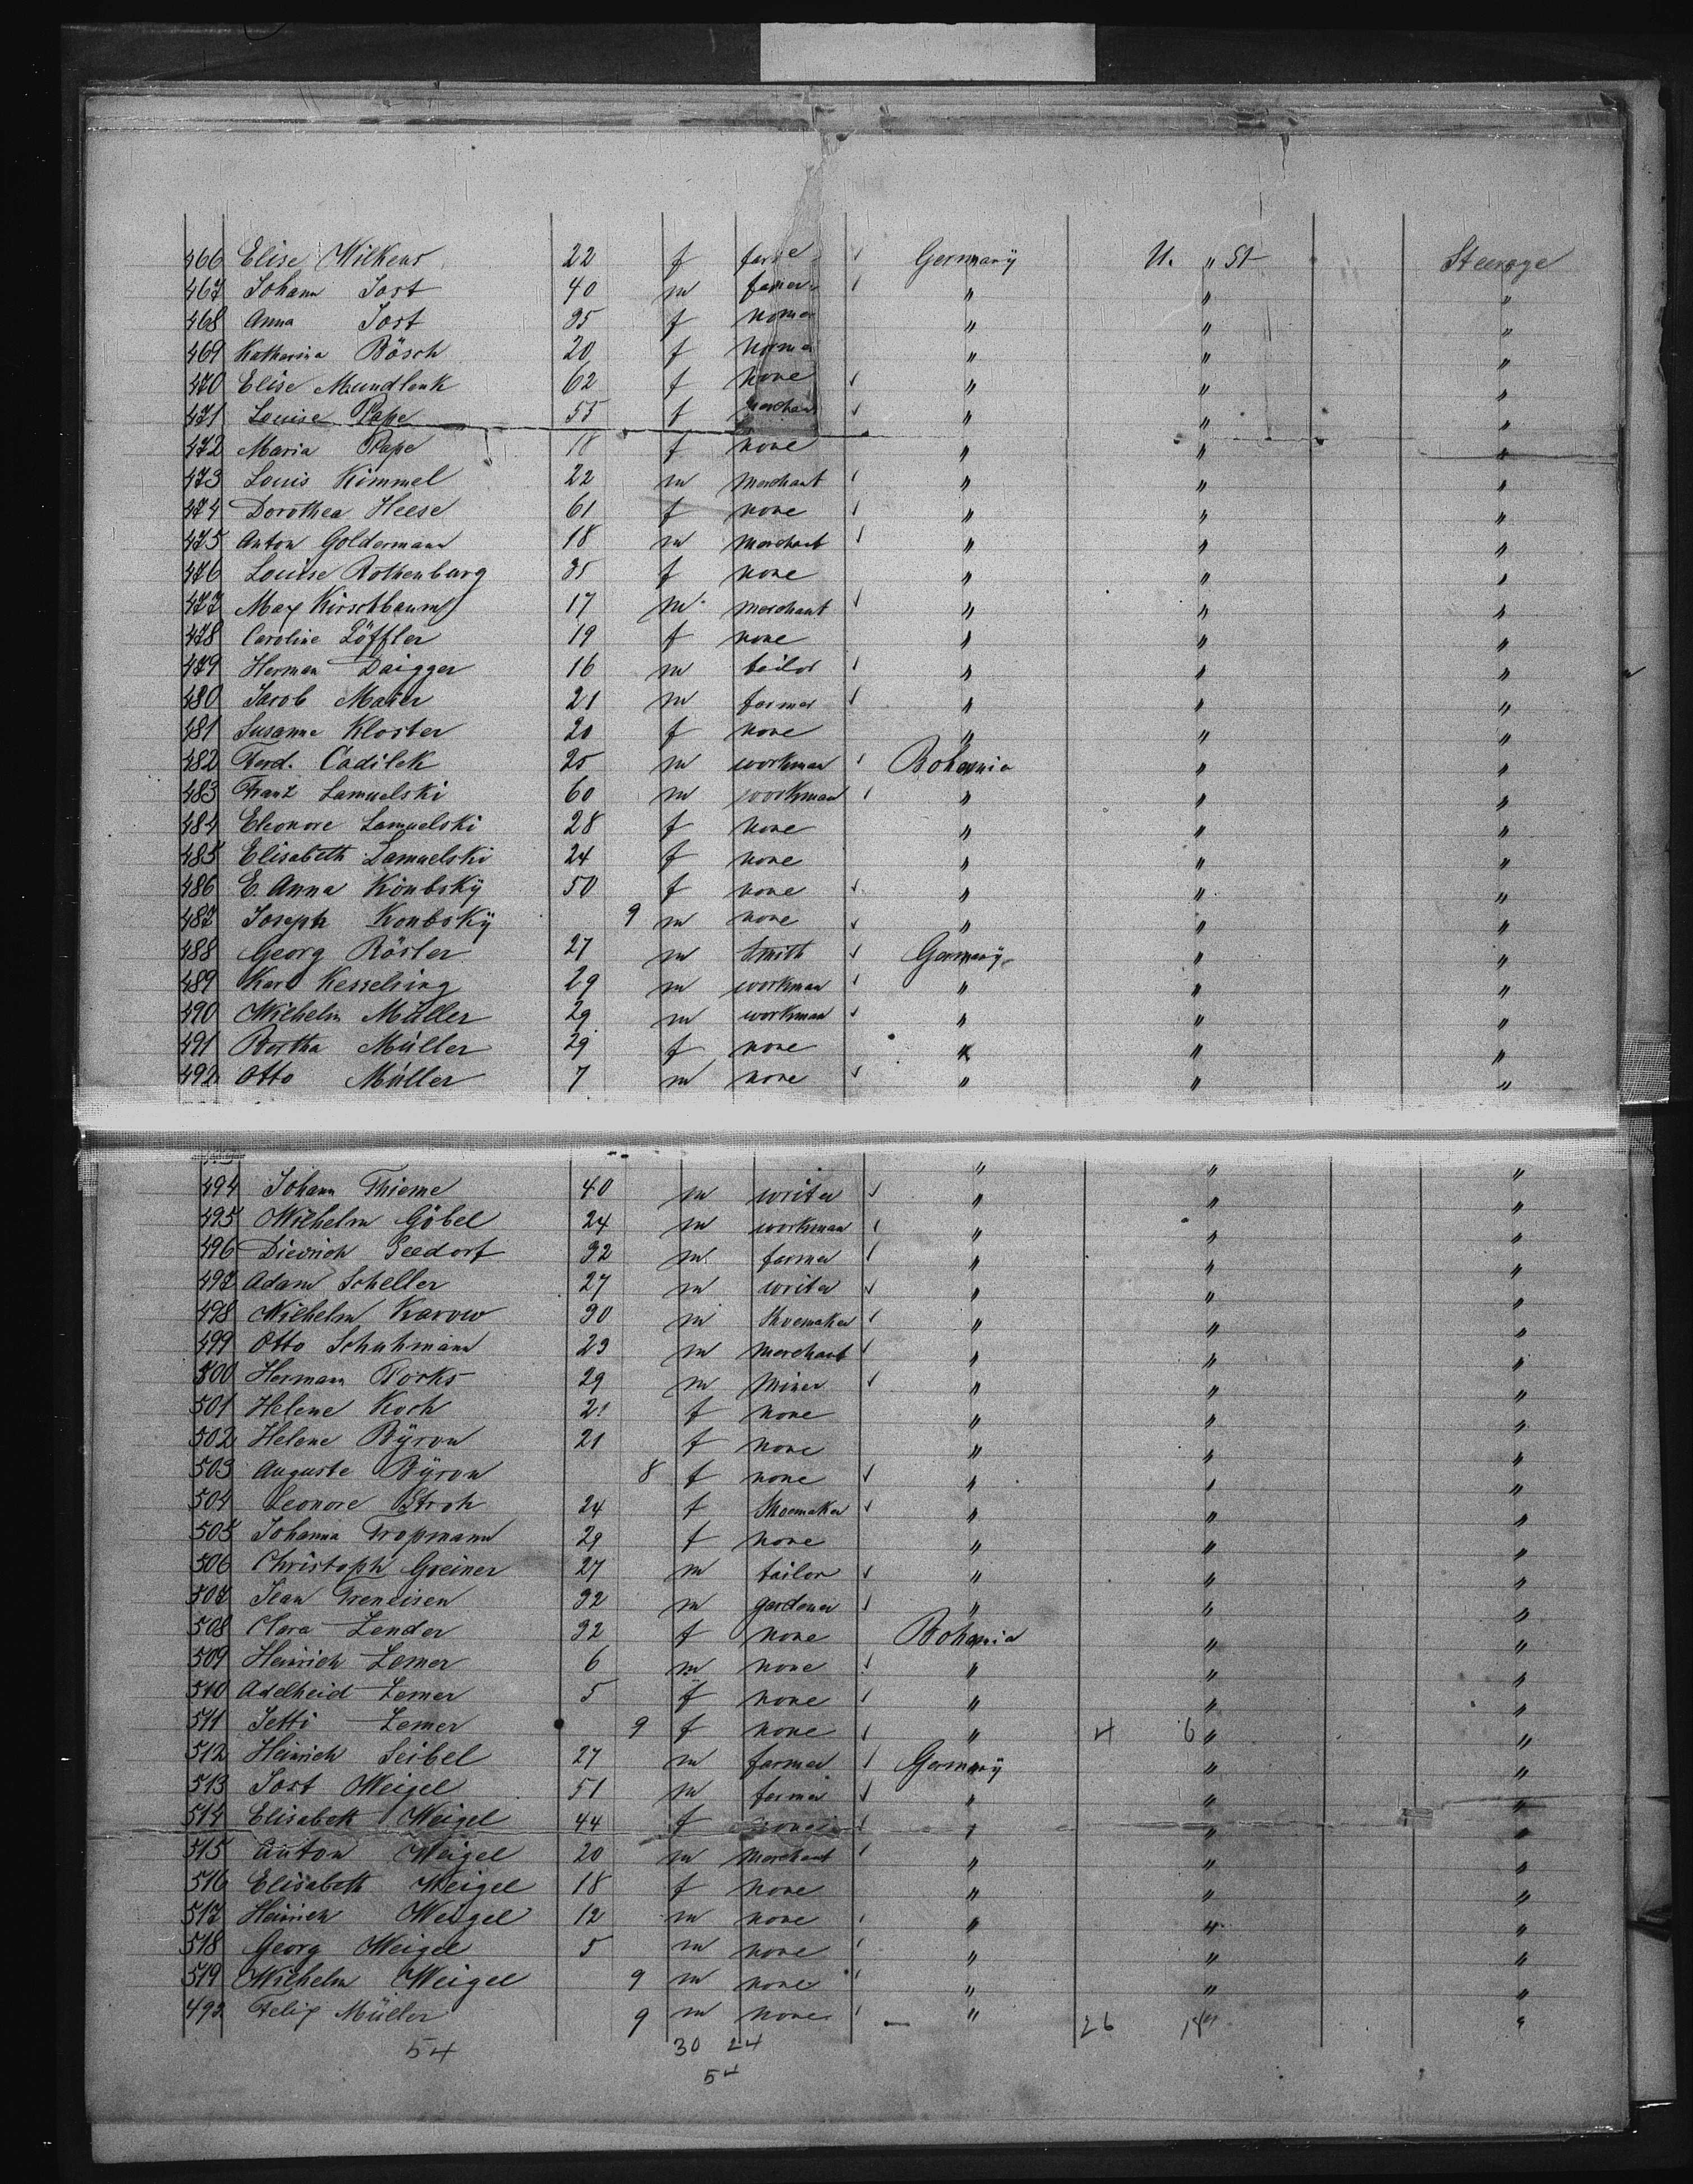 466 Elise Wilkens 22 f Germany U. " St Steerage
467 Johann Jost 40 m farmer " " "
468 Anna Jost 35 f " " "
469 Katharina Bösch 20 f " " "
470 Elise Mundlenk 62 f none " " "
471 Louise Pape 55 f merchant " " "
472 Maria Pape 18 f none " " "
473 Louis Kimmel 22 m merchant " " "
474 Dorothea Heese 61 f none " " "
475 Anton Goldermann 18 m merchant " " "
476 Louise Rothenburg 35 f none " " "
477 Max Kirschbaum 17 m merchant " " "
478 Caroline Löffler 19 f none " " "
479 Herman Daigger 16 m tailor " " "
480 Jacob Maier 21 m farmer " " "
481 Susanne Kloster 20 f none " " "
482 Ferd. Cadilek 25 m workman Bohemia " "
483 Franz Samuelski 60 m workman " " "
484 Eleonore Samuelski 28 f none " " "
485 Elisabeth Samuelski 24 f none " " "
486 E. Anna Konbskÿ 50 f none " " "
487 Joseph Konbskÿ 9 m none " " "
488 Georg Röster 27 m Smith Germany " "
489 Karl Kesselring 29 m workman " " "
490 Wilhelm Müller 29 m workman " " "
491 Bertha Müller 29 f none " " "
492 Otto Müller 7 m none " " "
" " "
494 Johann Thieme 40 m writer " " "
495 Wilhelm Göbel 24 m workman " " "
496 Diedrich Seedorf 32 m farmer " " "
497 Adam Scheller 27 m writer " " "
498 Wilhelm Karow 30 m Shoemaker " " "
499 Otto Schuhmann 23 m merchant " " "
500 Hermann Borks 29 m Miner " " "
501 Helene Koch 21 f none " " "
502 Helene Bÿron 21 f none " " "
503 Auguste Bÿron 8 f none " " "
504 Leonore Stroh 24 f Shoemaker " " "
505 Johanna Tropmann 29 f none " " "
506 Christoph Greiner 27 m tailor " " "
507 Jean Greneisen 32 m gardener " " "
508 Clara Lender 32 f none Bohemia " "
509 Heinrich Lemer 6 m none " " "
510 Adelheid Lemer 5 f none " " "
511 Jetti Lemer 9 f none " 4 6 " "
512 Heinrich Seibel 27 m farmer Germany " "
513 Jost Weigel 51 m farmer " " "
514 Elisabeth Weigel 44 f none " " "
515 Anton Weigel 20 m merchant " " "
516 Elisabeth Weigel 18 f none " " "
517 Heinrich Weigel 12 m none " " "
518 Georg Weigel 5 m none " " "
519 Wilhelm Weigel 9 m none " " "
493 Felix Müller 9 m none " 26 "
54 30 24
54